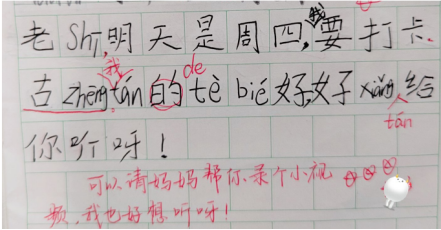 老Shī,明天是周四,我要打卡.
古zhēng我tán的de tè bié好,好xiǎng给
tán
你听呀!
可以请妈妈帮你录个小视
频,我也好想听呀!